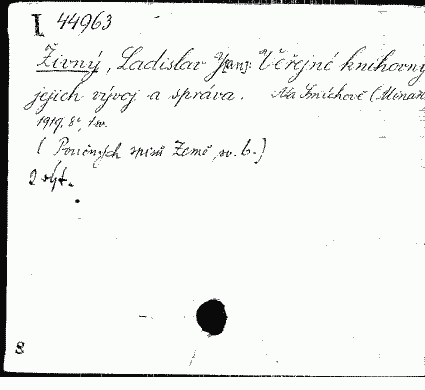 I 44963
Živný, Ladislav Jan: Veřejné knihovny
jejich vývoj a správa. Na Smíchově (Minař
1919. 8°, 1 sv.
( Poučných spisů Země, sv. 6.)
2 výt.
8